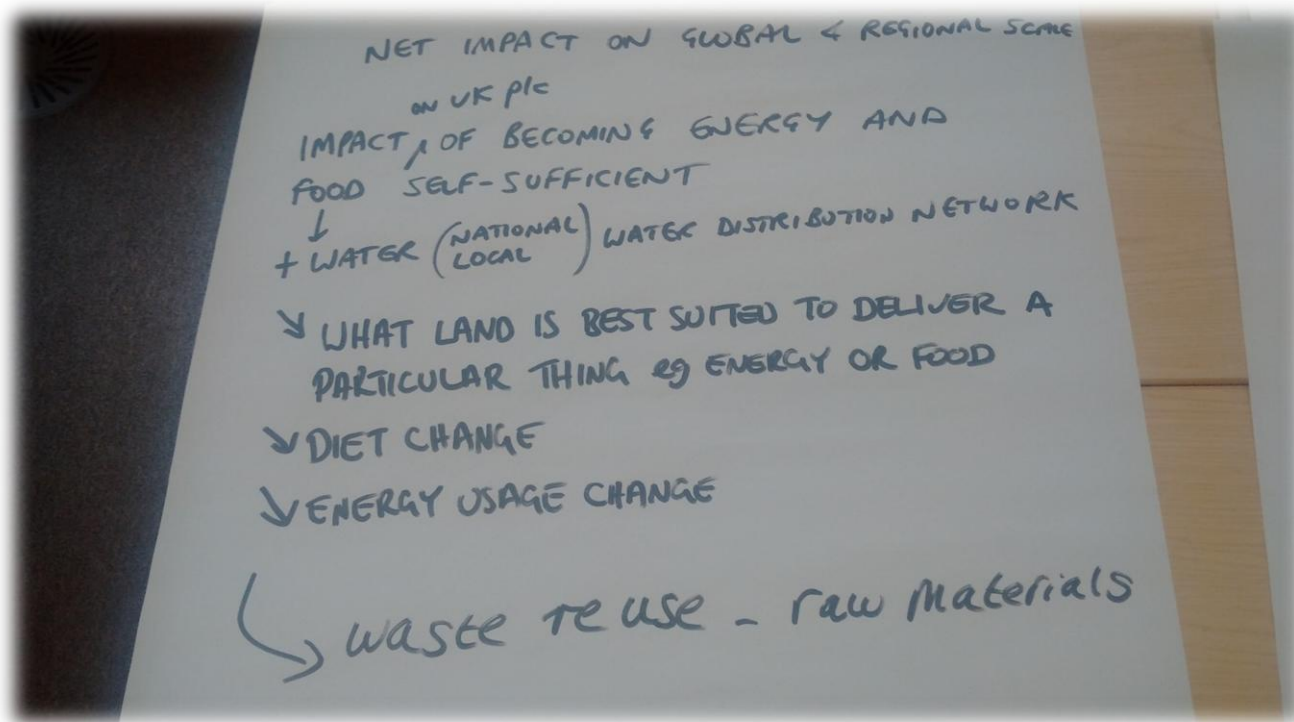 NET IMPACT ON GLOBAL & REGIONAL SCALE
ON UK plc
IMPACT, OF BECOMING ENERGY AND
FOOD SELF-SUFFICIENT
↓
+ WATER (NATIONAL LOCAL) WATER DISTRIBUTION NETWORK
↘ WHAT LAND IS BEST SUITED TO DELIVER A
PARTICULAR THING eg ENERGY OR FOOD
↘ DIET CHANGE
↘ ENERGY USAGE CHANGE
↘ waste re use - raw materials